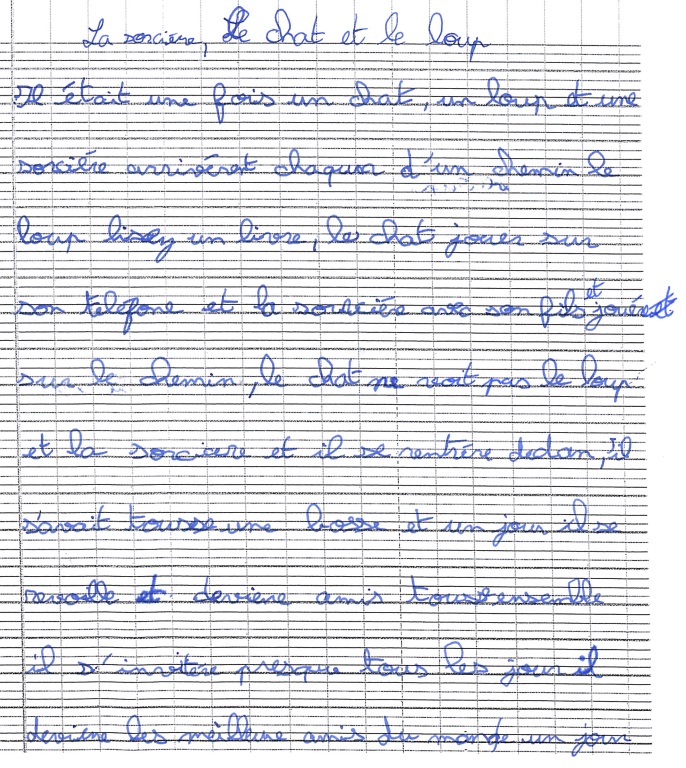 La sorciere, Le chat et le loup
Il était une fois un chat, un loup et une
sorcière arrivérat chaqun d'un chemin le
loup lisey un livre, le chat jouer sur
son telefone et la sorcière avec son fils et jouérat
sur le chemin, le chat ne voit pas le loup
et la sorciere et il se rentrère dedan, il
s'avait tousse une bosse et un jour il se
revoille et deviene amis tousensemble
il s'invitère presque tous les jour il
deviene les meilleure amis du monde un jour